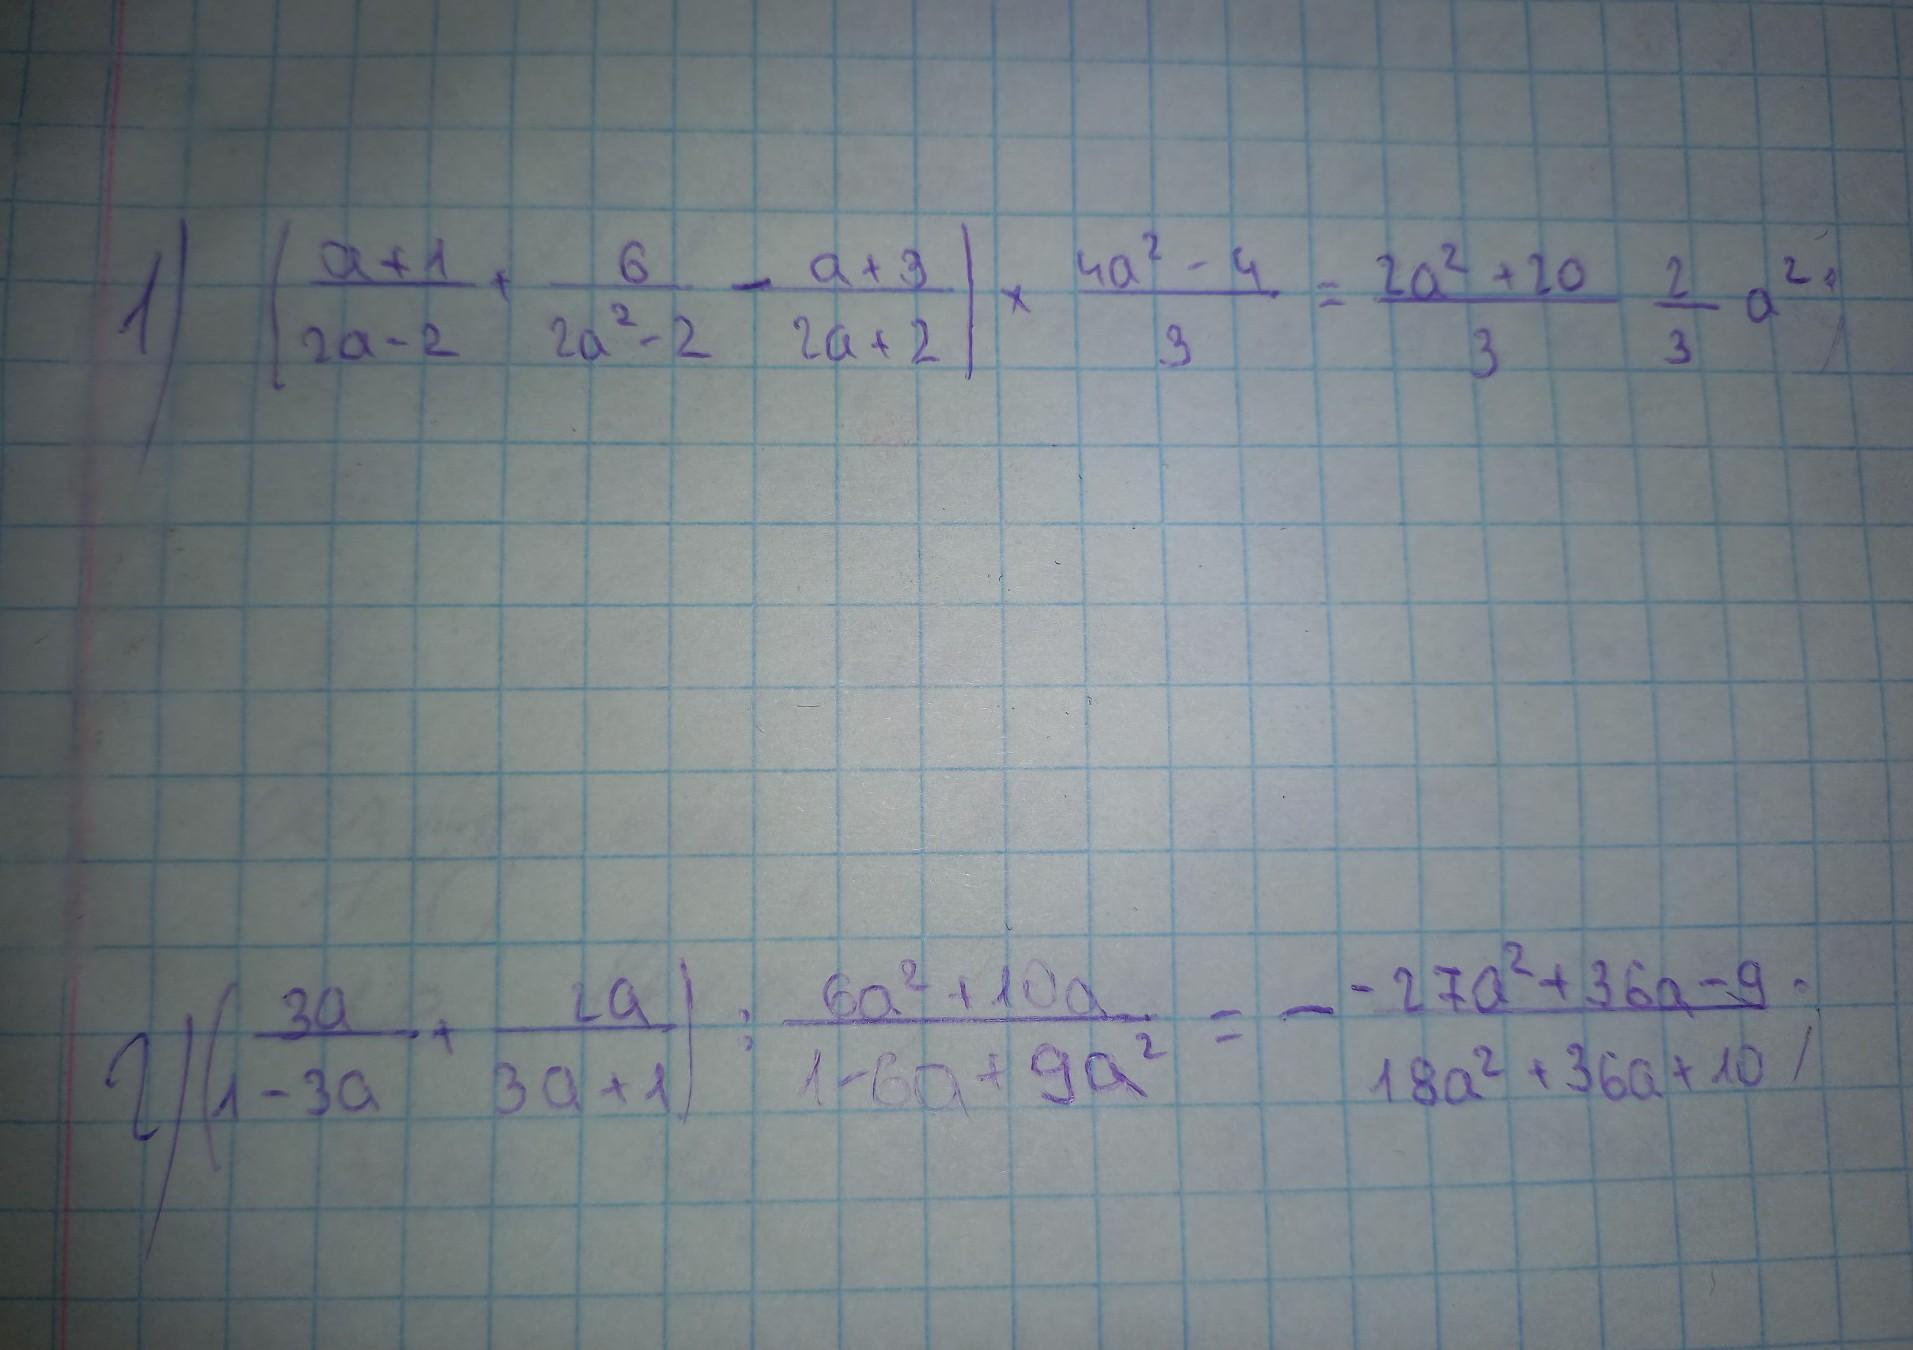 1) ( (a+1)/(2a-2) + 6/(2a²-2) - (a+3)/(2a+2) ) × (4a²-4)/3 = (2a²+20)/3 2/3 a²;
2) ( 3a/(1-3a) + 2a/(3a+1) ) : (6a²+10a)/(1-6a+9a²) = - (-27a²+36a-9)/(18a²+36a+10);